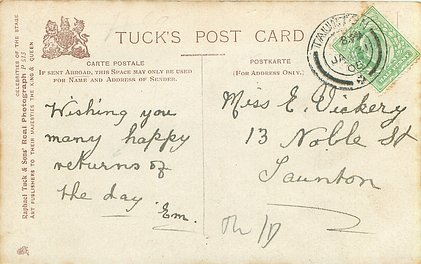 TUCK'S POST CARD
CARTE POSTALE
IF SENT ABROAD, THIS SPACE MAY ONLY BE USED
FOR NAME AND ADDRESS OF SENDER.
POSTKARTE
(FOR ADDRESS ONLY.)
CELEBRITIES OF THE STAGE
Raphael Tuck & Sons' Real Photograph P 513
ART PUBLISHERS TO THEIR MAJESTIES THE KING & QUEEN
Wishing you
many happy
returns of
the day. Em.
Miss E. Vickery
13 Noble St
Taunton
TAUNTON
JA
06